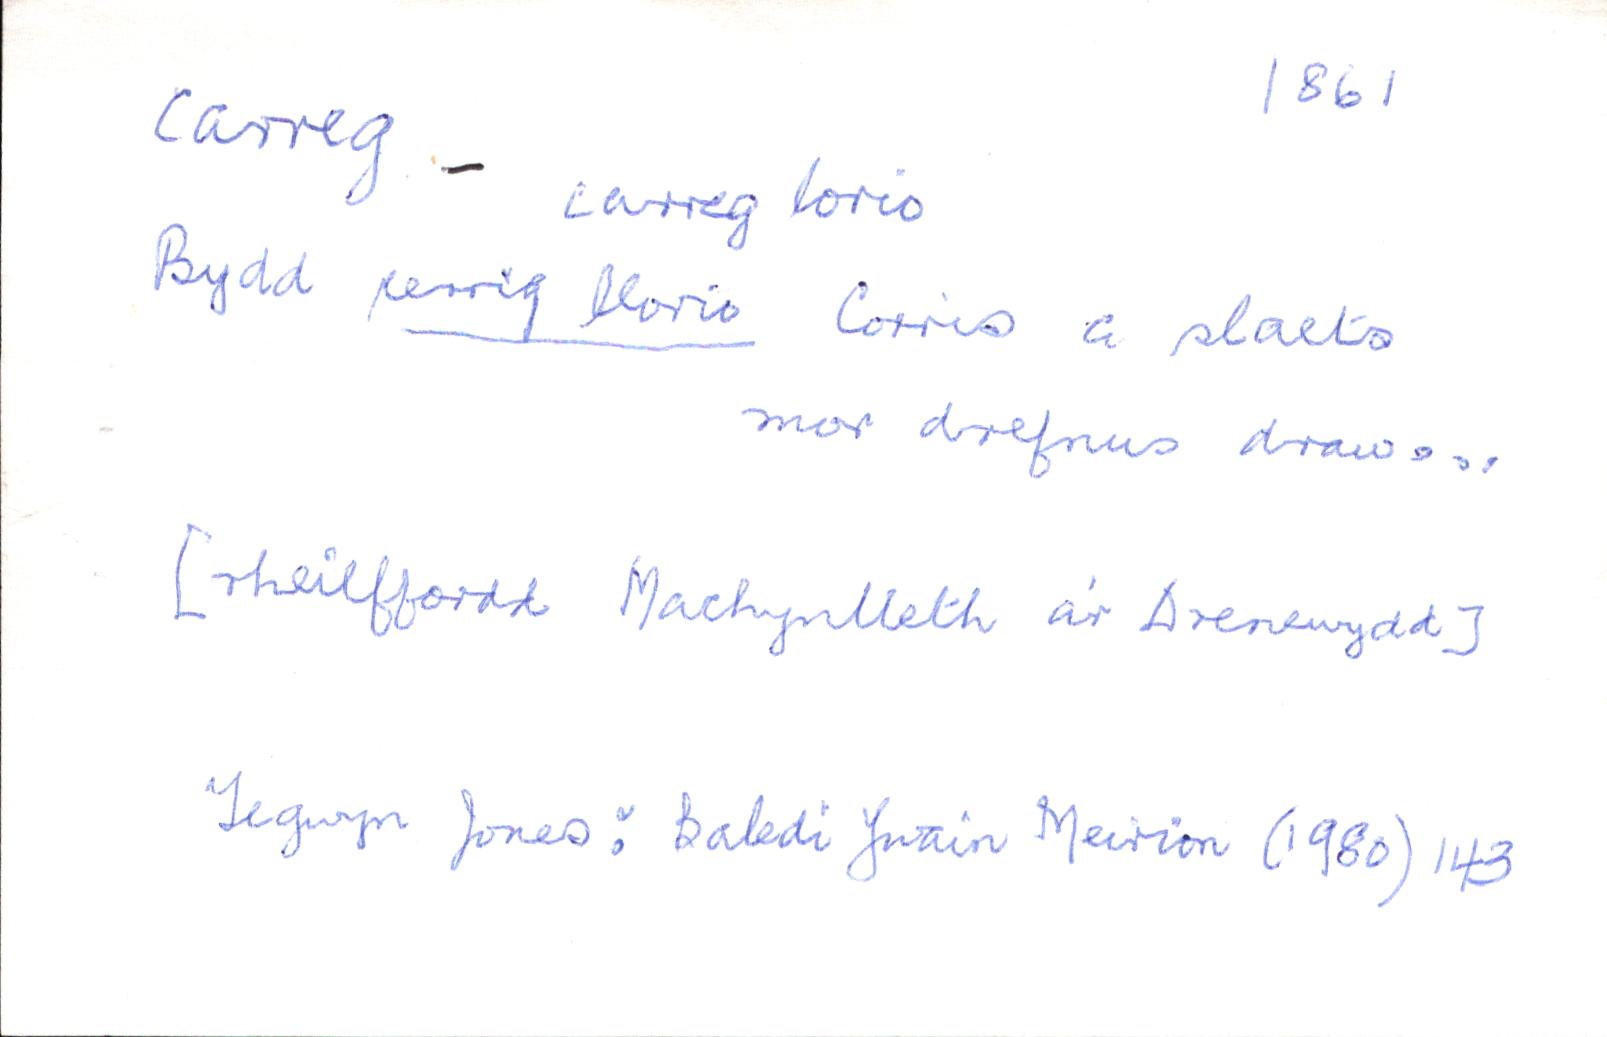 1861
Carreg –
carreg lorio
Bydd cerrig llorio Corris a slaets
mor drefnus draw...
[rheilffordd Machynlleth a'r Drenewydd]
Tegwyn Jones: Baledi Ywain Meirion (1980) 143